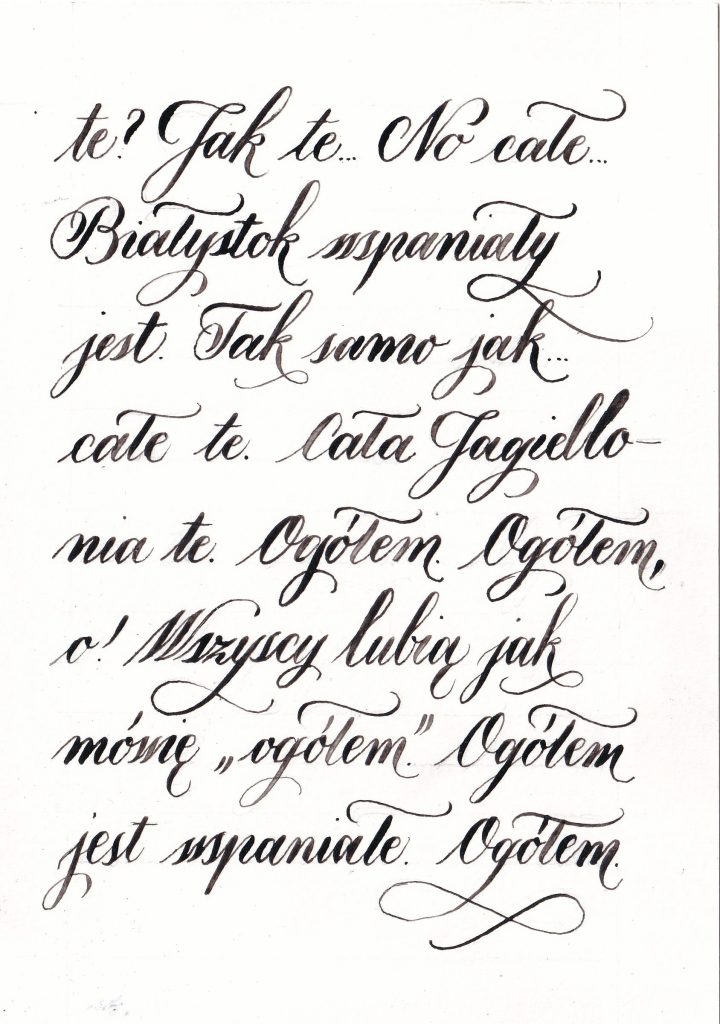 te? Jak te... No całe...
Białystok wspaniały
jest. Tak samo jak...
całe te. Cała Jagiello-
nia te. Ogółem. Ogółem,
o! Wszyscy lubią jak
mówię „ogółem.” Ogółem
jest wspaniałe. Ogółem.